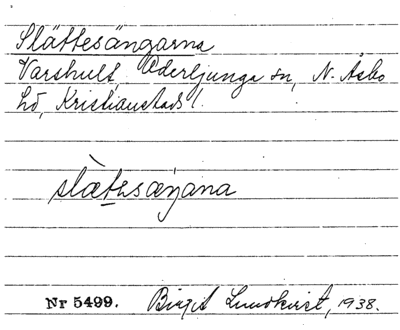 Slättesängarna
Varshult, Oderljunga sn, N. Åsbo
hd, Kristianstads l.
slὰtesæŋana
Nr 5499. Birgit Lundkvist, 1938.